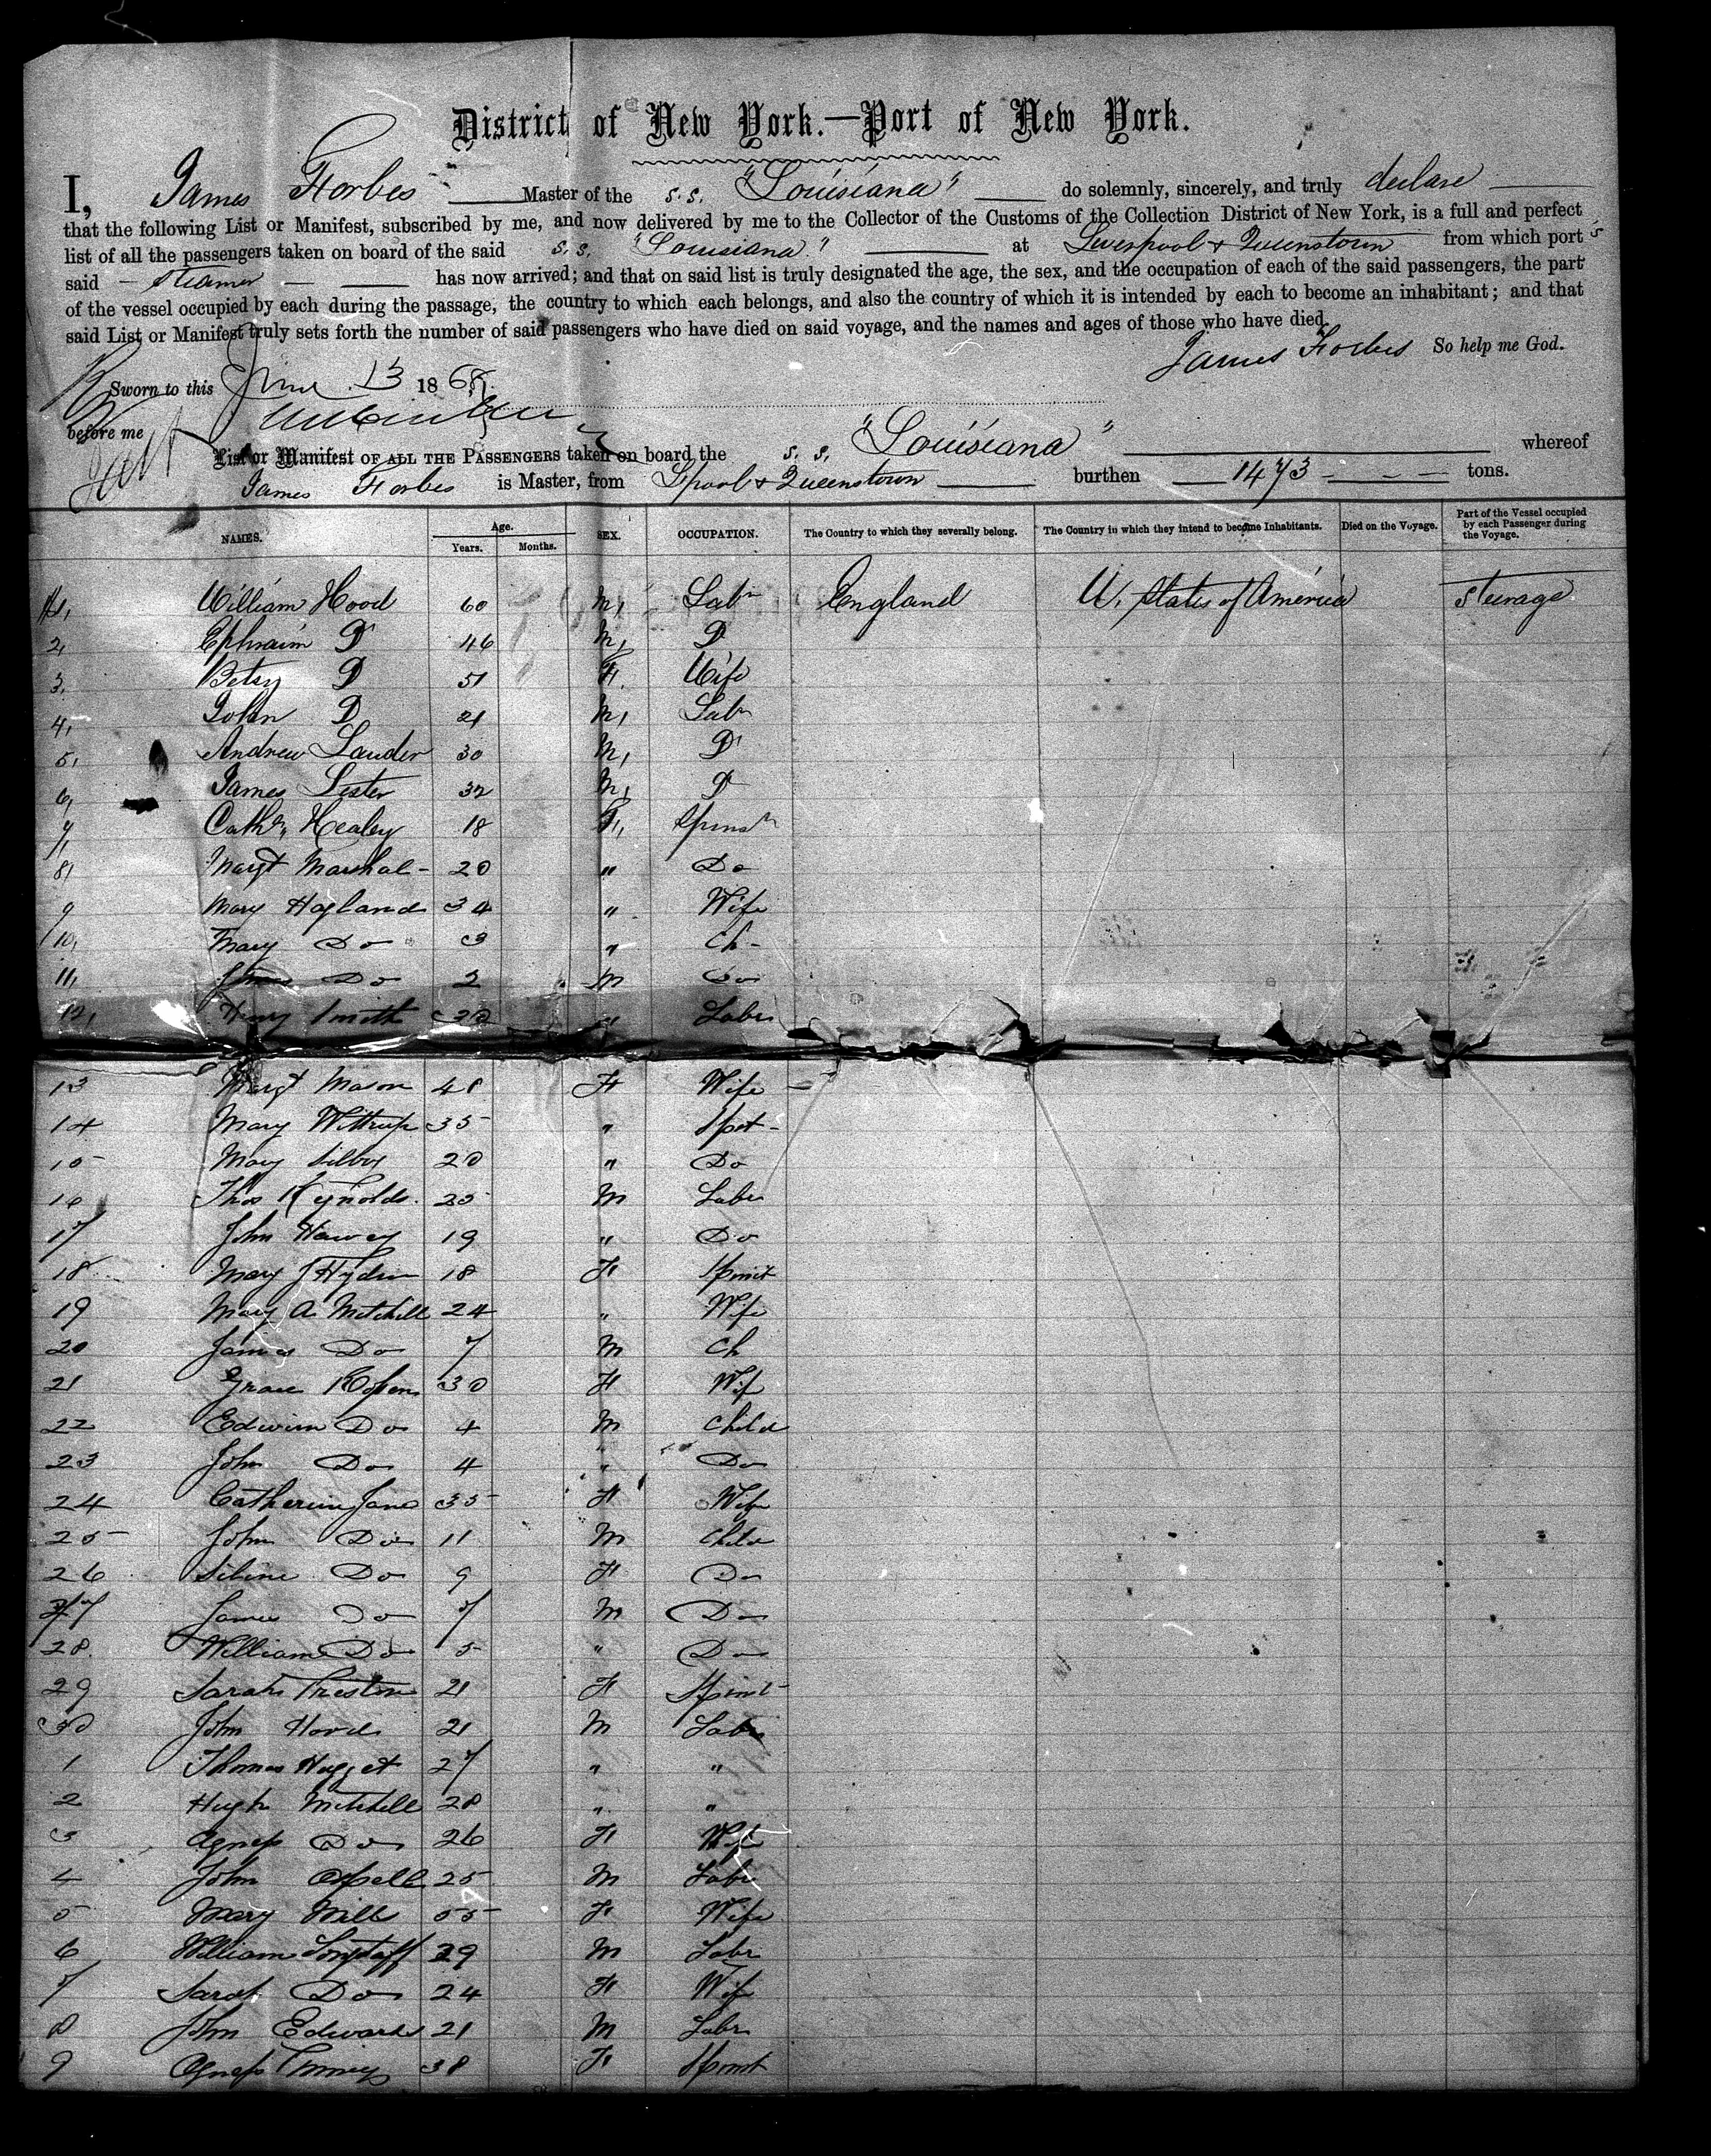 District of New York.—Port of New York.
I, James Forbes Master of the s.s. "Louisiana" do solemnly, sincerely, and truly declare
that the following List or Manifest, subscribed by me, and now delivered by me to the Collector of the Customs of the Collection District of New York, is a full and perfect
list of all the passengers taken on board of the said s.s. "Louisiana" at Liverpool & Queenstown from which port s
said steamer has now arrived; and that on said list is truly designated the age, the sex, and the occupation of each of the said passengers, the part
of the vessel occupied by each during the passage, the country to which each belongs, and also the country of which it is intended by each to become an inhabitant; and that
said List or Manifest truly sets forth the number of said passengers who have died on said voyage, and the names and ages of those who have died.
James Forbes So help me God.
Sworn to this June 13 186
before me
List or Manifest OF ALL THE PASSENGERS taken on board the s.s. "Louisiana" whereof
James Forbes is Master, from Lpool & Queenstown burthen 1473 tons.
NAMES. Age. Years. Months. SEX. OCCUPATION. The Country to which they severally belong. The Country in which they intend to become Inhabitants. Died on the Voyage. Part of the Vessel occupied by each Passenger during the Voyage.
1, William Hood 60 M, Labr England U. States of America Steerage
2, Ephraim Do 46 M, Do
3, Betsy Do 51 F. Wife
4, John Do 21 M, Labr
5, Andrew Lauder 30 M, Do
6, James Lester 32 M, Do
7, Cathn, Healey 18 F, Spinstr
8, Margt Marshal - 20 " Do
9 Mary Hogland 34 " Wife
10, Mary Do 3 " Ch -
11, Do 2 M Do
12, Henry Smith " Labr
13 Margt Mason 48 F Wife
14 Mary 35 " Spst -
15 Mary 20 " Do
16 Thos Reynolds. 25 M Labr
17 John 19 " Do
18 Mary J 18 F Spinst
19 Mary A Mitchell 24 " Wife
20 James Do 7 M Ch
21 Grace 30 F Wif
22 Edwin Do 4 M Child
23 John Do 4 " Do
24 Catherin Jane 35 F Wife
25 John Do 11 M Child
26 Do 9 F Do
27 James Do 7 M Do
28. William Do 5 " Do
29 Sarah Preston 21 F Spinst
30 John 21 M Labr
1 Thomas Hugget 27 " "
2 Hugh Mitchell 28 " "
3 Agness Do 26 F Wife
4 John 25 M Labr
5 Mary Mills 55 F Wife
6 William Longstaff 29 M Labr
7 Sarah Do 24 F Wife
8 John Edwards 21 M Labr
9 Agness 38 F Spinst